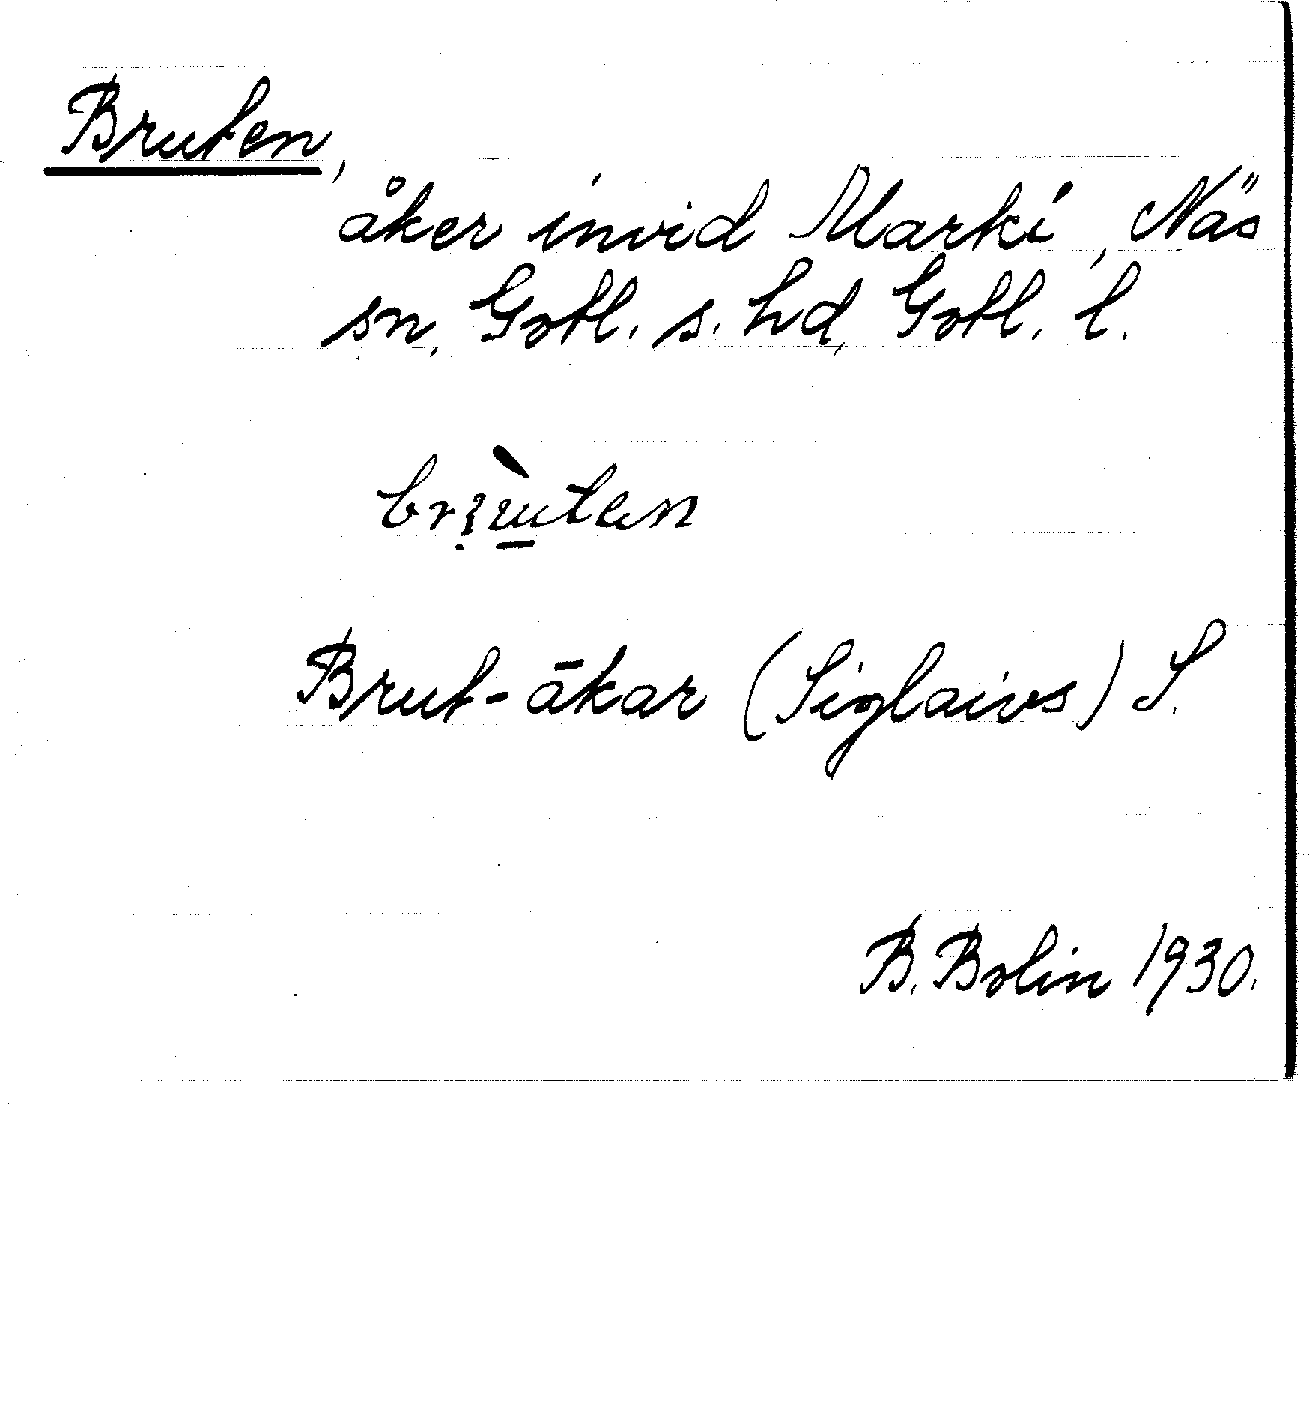 Bruten,
åker invid Marki, Näs
sn, Gotl. s. hd, Gotl. l.
Brut-ākar (Siglaivs) S.
B. Bolin 1930.